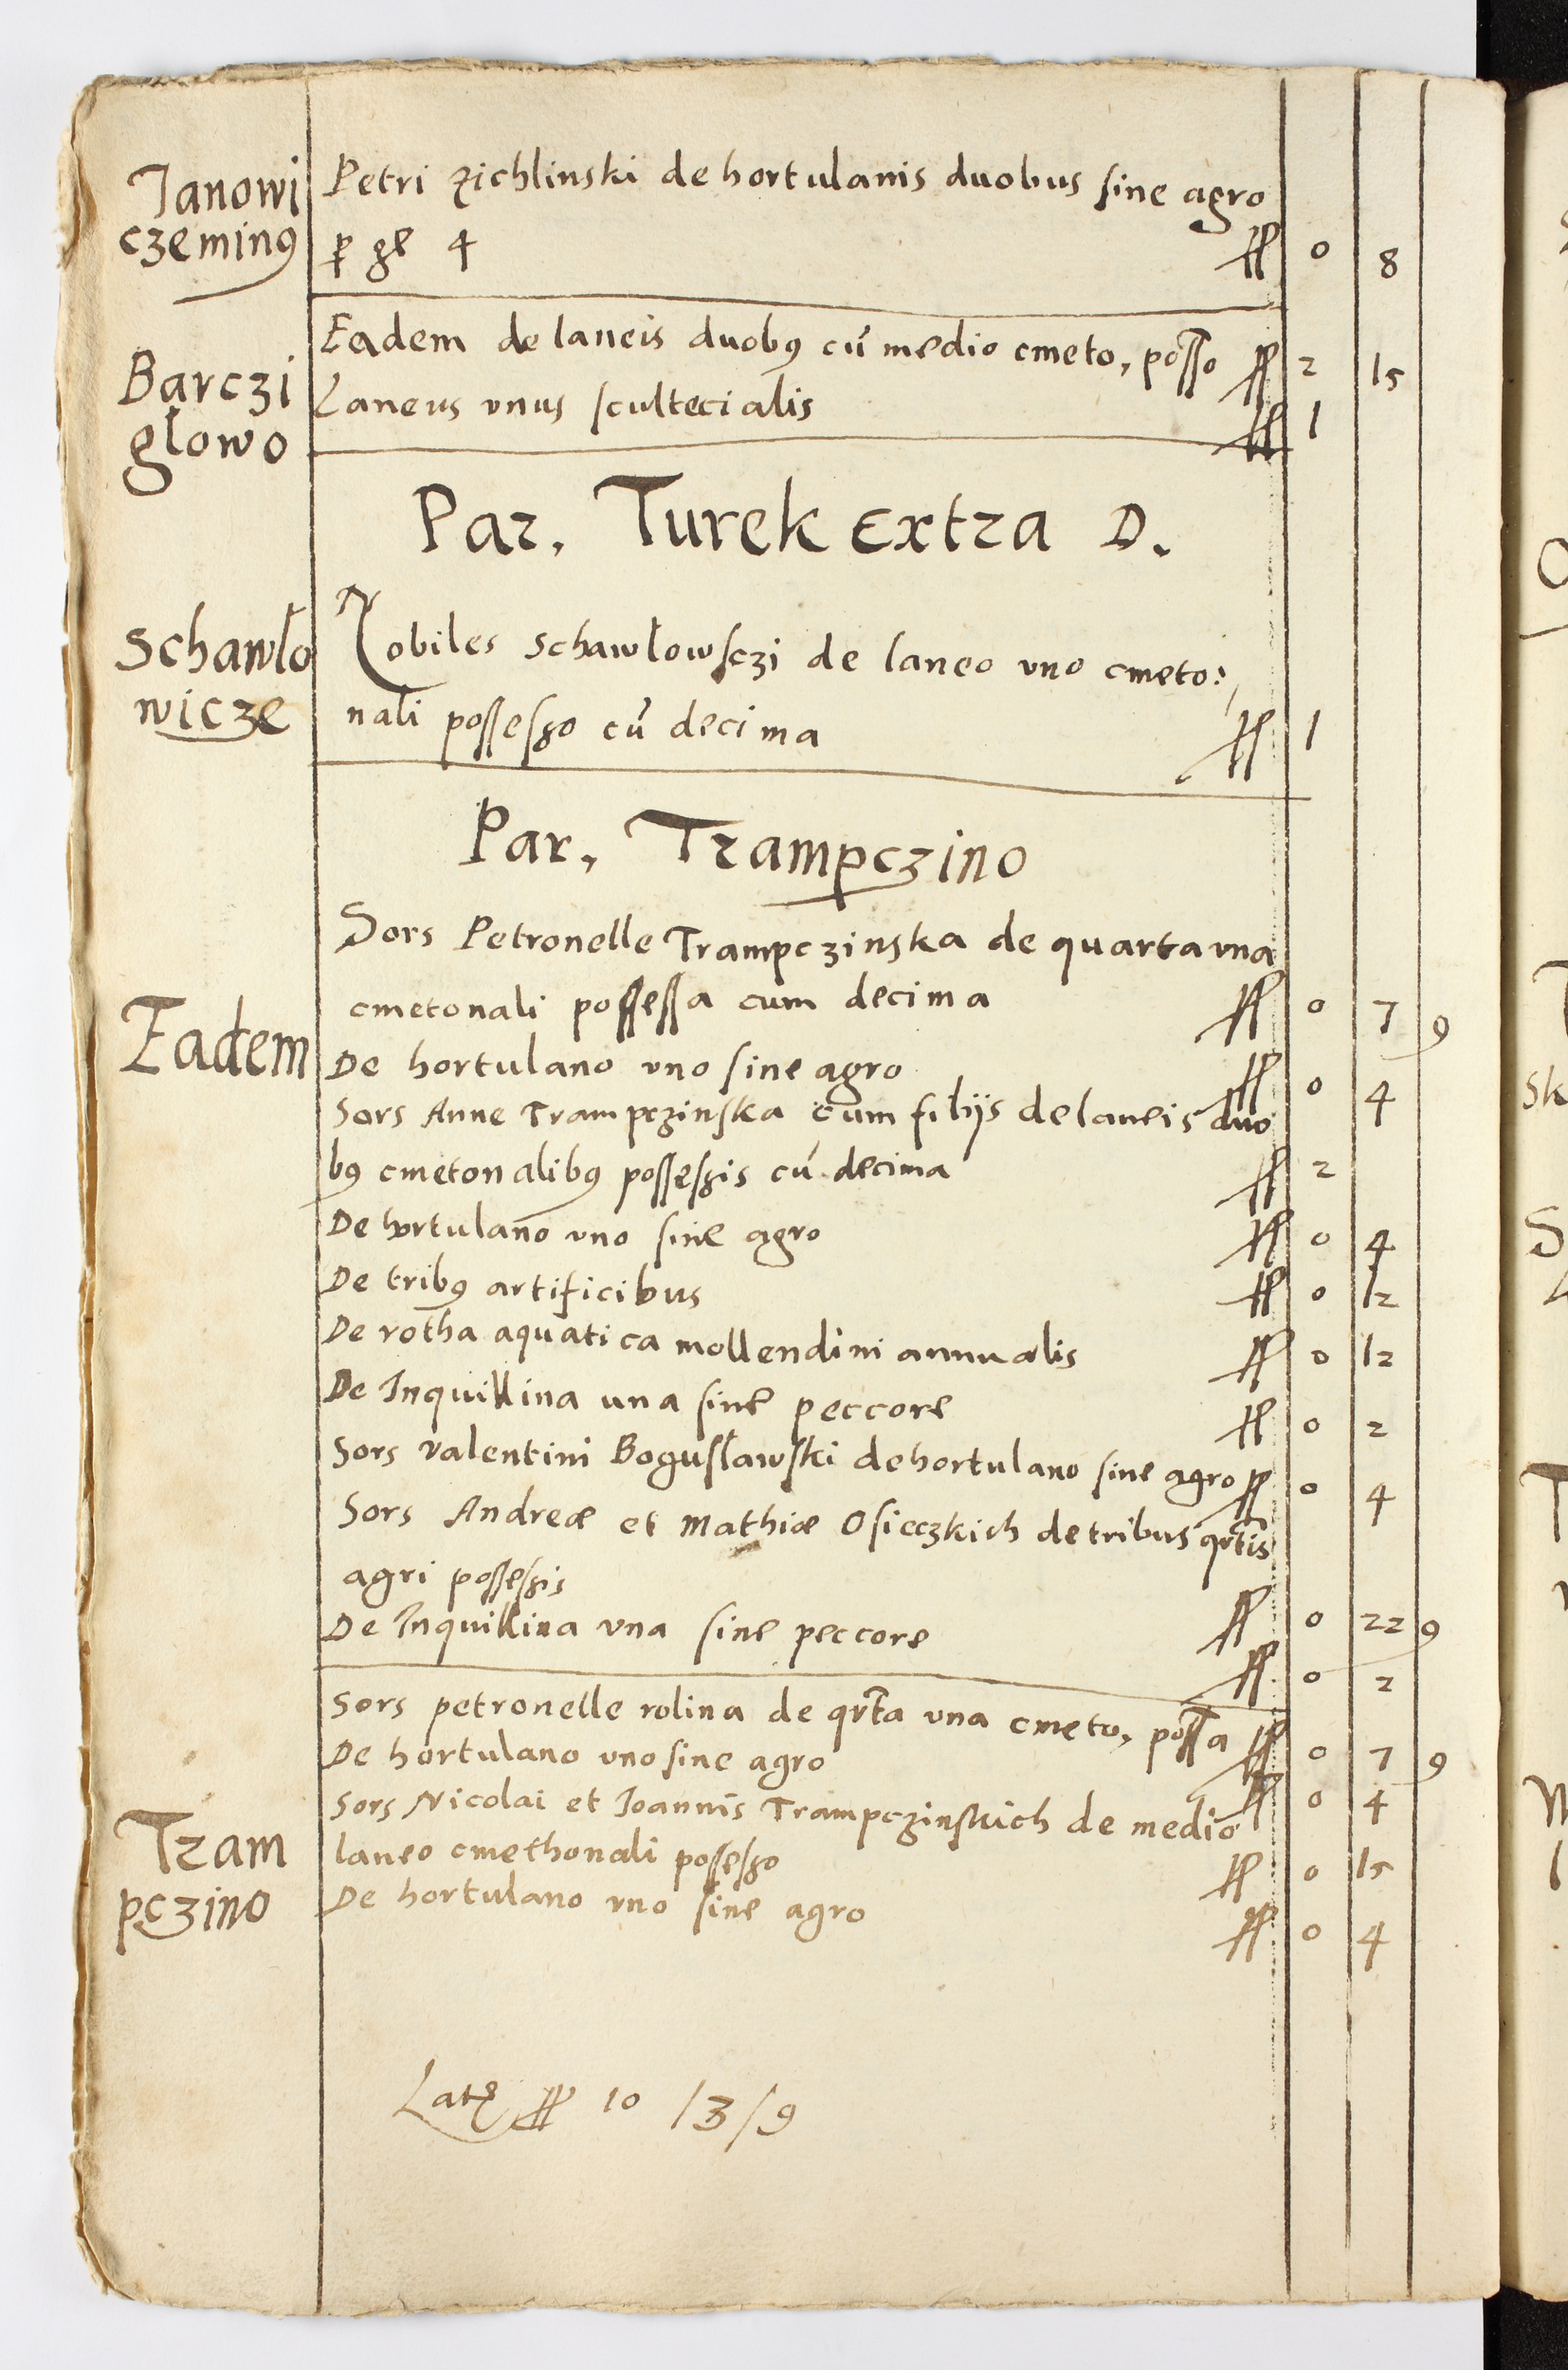 Janowi
czeminꝰ
Petri Zichlinski de hortulanis duobus sine agro
ꝑ gr 4 ff 0 8
Barczi
głowo
Eadem de laneis duobꝰ cū medio cmeto, posso ff 2 15
Laneus vnus scultecialis ff 1
Par, Turek Extra D.
Schawło
wicze
Nobiles Schawłowsczi de laneo vno cmeto:
nali possesso cū decima ff 1
Par, Trampczino
Eadem
Sors Petronelle Trampczinska de quarta vna
cmetonali possessa cum decima ff 0 7 9
De hortulano vno sine agro ff 0 4
Sors Anne Trampczinska cum filijs de laneis duo
bꝰ cmetonalibꝰ possessis cū decima ff 2
De hortulano vno sine agro ff 0 4
De tribꝰ artificibus ff 0 12
De rotha aquatica mollendini annualis ff 0 12
De Inquillina una sine peccore ff 0 2
Sors Valentini Bogusławski de hortulano sine agro ff 0 4
Sors Andreæ et Mathiæ Osieczkich de tribus qrtis
agri possessis ff 0 22 9
De Inquillina vna sine peccore ff 0 2
Sors petronelle rolina de qrta vna cmeto, possa ff 0 7 9
De hortulano vno sine agro ff 0 4
Tram
pczino
Sors Nicolai et Joannis Trampczinskich de medio
laneo cmethonali possesso ff 0 15
De hortulano vno sine agro ff 0 4
Latꝰ ff 10 /3/9